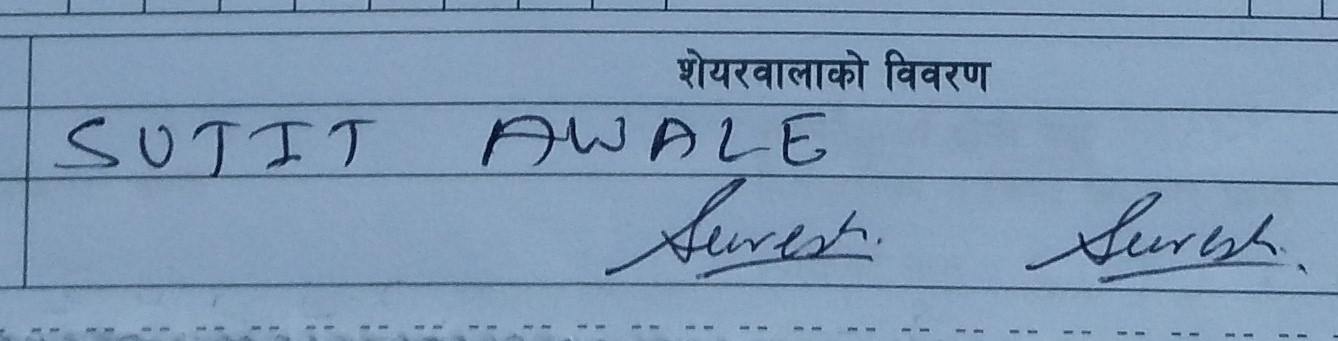 शेयरवालाको विवरण
SUJIT AWALE
Suresh. Suresh.